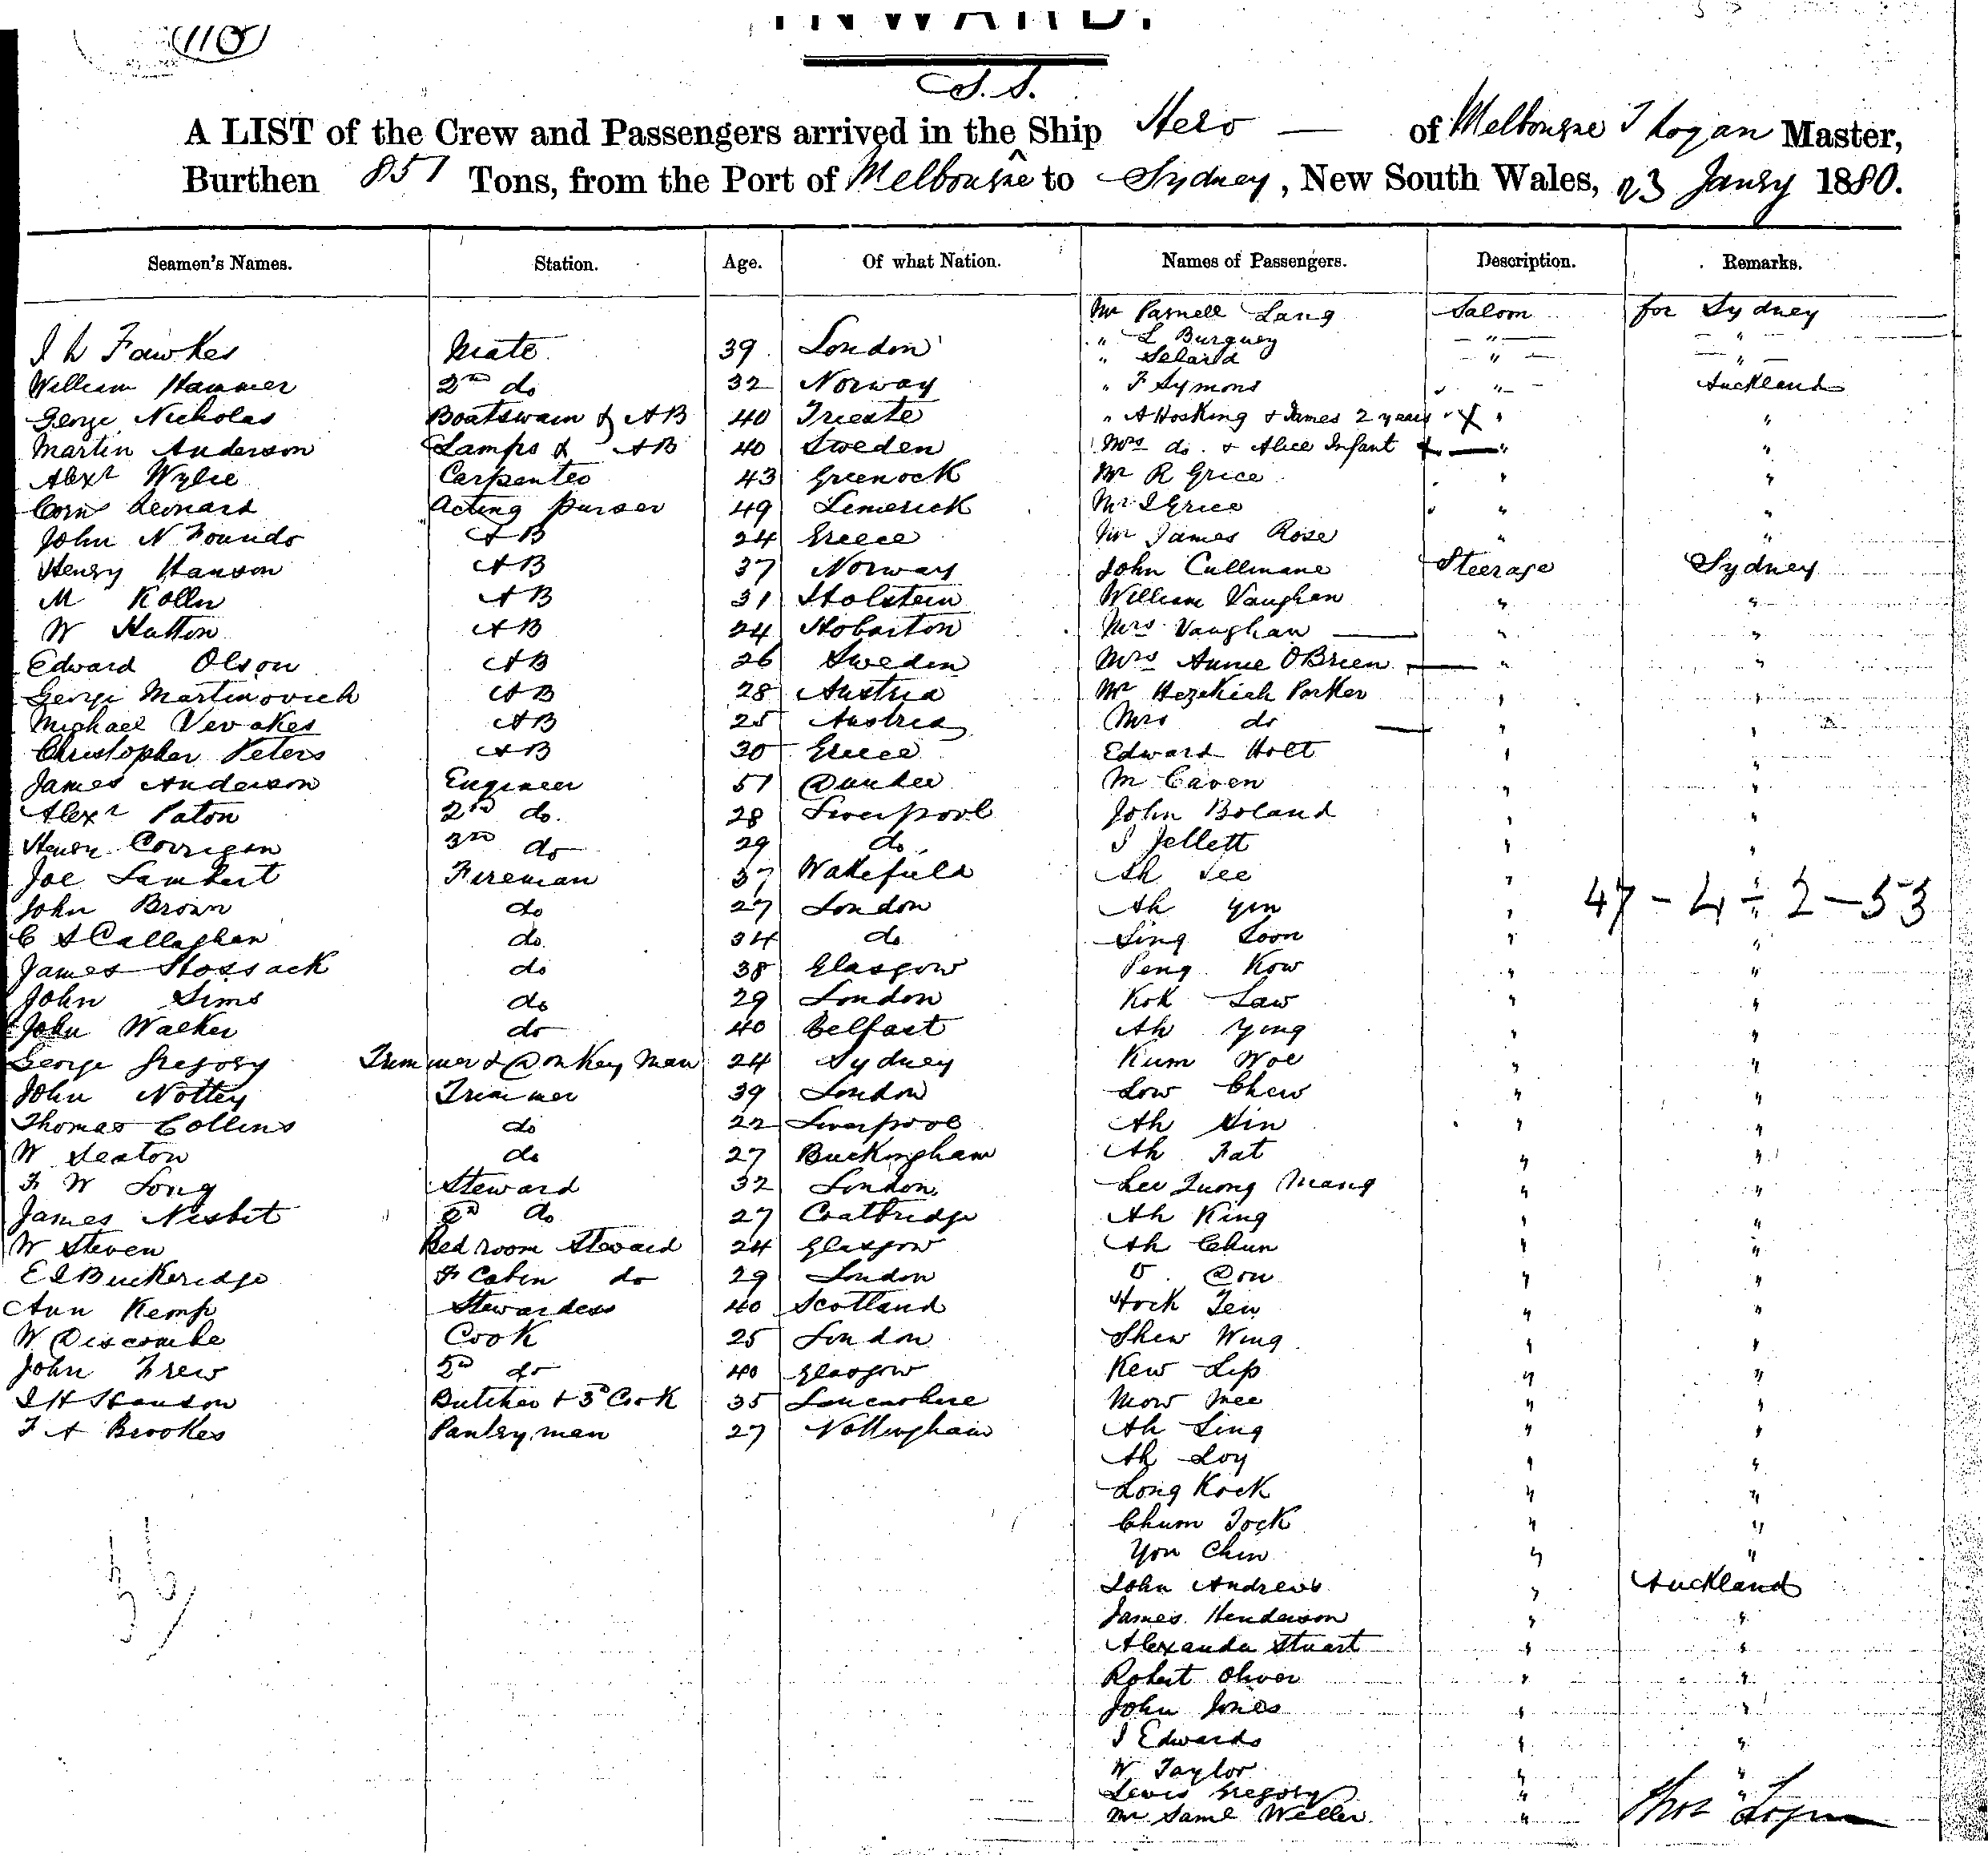 110
INWARD.
S.S.
A LIST of the Crew and Passengers arrived in the Ship Hero — of Melbourne T Logan Master,
Burthen 857 Tons, from the Port of Melbourne to Sydney, New South Wales, 23 Janry 1880.
Seamen's Names. Station. Age. Of what Nation. Names of Passengers. Description. Remarks.
Mr Parnell Lang Saloon for Sydney
J L Fawkes Mate 39 London " L Burguey " "
" Selard " "
William Hammer 2nd do 32 Norway " F Symons " Auckland
George Nicholas Boatswain & AB 40 Trieste " A Hosking & James 2 years " "
Martin Anderson Lamps & AB 40 Sweden Mrs do. & Alice Infant " "
Alexr Wylie Carpenter 43 Greenock Mr R Grice " "
Corns Leonard Acting Purser 49 Limerick Mr J Grice " "
John N Founds AB 24 Greece Mr James Rose " "
Henry Hanson AB 37 Norway John Cullinane Steerage Sydney
M Koller AB 31 Holstein William Vaughan " "
W Hutton AB 24 Hobarton Mrs Vaughan " "
Edward Olson AB 26 Sweden Mrs Annie OBrien " "
George Martinovich AB 28 Austria Mr Hezekiah Parker " "
Michael Vevakes AB 25 Austria Mrs do " "
Christopher Peters AB 30 Greece Edward Holt " "
James Anderson Engineer 51 Dundee M Caven " "
Alexr Paton 2nd do. 28 Liverpool John Boland " "
Henry Corrigan 3rd do 29 do. J Jellett " "
Joe Lambert Fireman 37 Wakefield Ah Lee " "
John Brown do 27 London Ah Yen " 47 - 4 ÷ 2 - 53
C OCallaghan do. 34 do. Sing Loon " "
James Hossack do 38 Glasgow Peng Kow " "
John Sims do 29 London Kok Law " "
John Walker do 40 Belfast Ah Ying " "
George Gregory Trimmer & Donkey Man 24 Sydney Kum Woe " "
John Nottey Trimmer 39 London Low Chew " "
Thomas Collins do 22 Liverpool Ah Sin " "
W Seaton do 27 Buckingham Ah Fat " "
F W Long Steward 32 London Lee Quong Mang " "
James Nisbet 2nd do 27 Coatbridge Ah King " "
W Steven Bedroom Steward 24 Glasgow Ah Chun " "
E J Buckeridge F Cabin do 29 London O. Don " "
Ann Kemp Stewardess 40 Scotland Hock Tew " "
W Discombe Cook 25 London Shew Wing " "
John Frew 2nd do 40 Glasgow Kew Lip " "
J H Handon Butcher & 3rd Cook 35 Lancashire Mow Mee " "
F A Brookes Pantryman 27 Nottingham Ah Ling " "
Ah Loy " "
Long Kock " "
Chum Jock " "
You Chin " "
John Andrews " Auckland
James Henderson " "
Alexander Stuart " "
Robert Oliver " "
John Jones " "
J Edwards " "
W Taylor " "
Lewis Gregory " "
Mr Saml Weller " Thos Logan